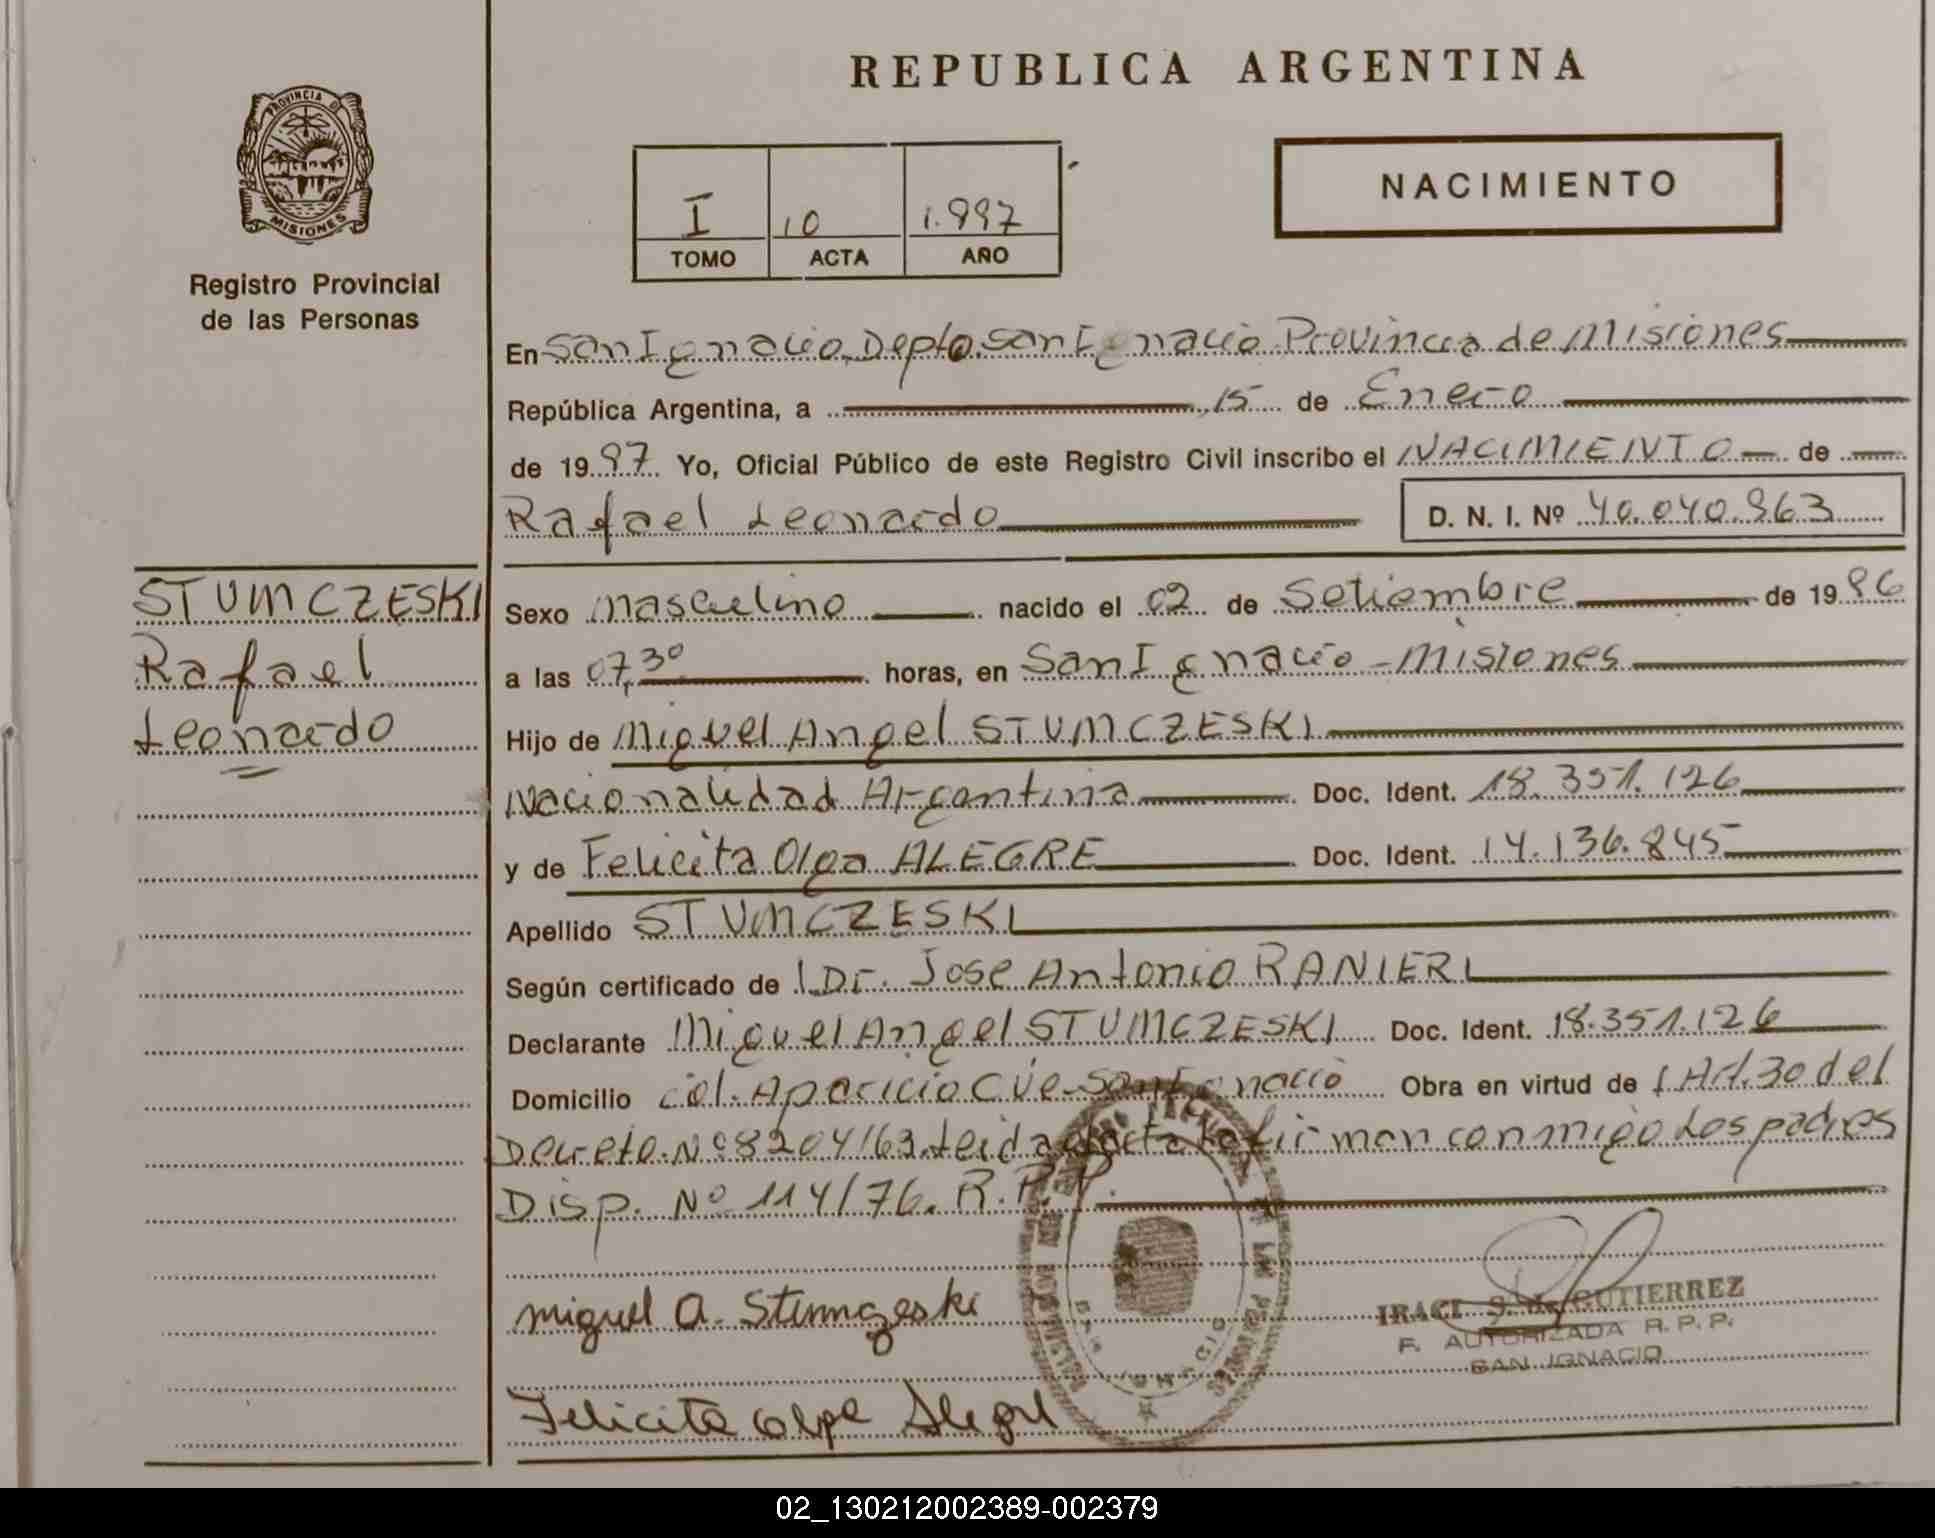 REPUBLICA ARGENTINA
PROVINCIA DE
MISIONES
Registro Provincial
de las Personas
I 10 1.997
TOMO ACTA AÑO
NACIMIENTO
En San Ignacio, Depto. San Ignacio Provincia de Misiones
República Argentina, a 15 de Enero
de 1997 Yo, Oficial Público de este Registro Civil inscribo el NACIMIENTO de
Rafael Leonardo D. N. I. Nº 40.040.963
STUMCZESKI
Rafael
Leonardo
Sexo masculino nacido el 02 de Setiembre de 1996
a las 07,30 horas, en San Ignacio - Misiones
Hijo de Miguel Angel STUMCZESKI
Nacionalidad Argentina Doc. Ident. 18.351.126
y de Felicita Olga ALEGRE Doc. Ident. 14.136.845
Apellido STUMCZESKI
Según certificado de Dr. Jose Antonio RANIERI
Declarante Miguel Angel STUMCZESKI Doc. Ident. 18.351.126
Domicilio Col. Aparicio Cue - San Ignacio Obra en virtud de Art. 30 del
Decreto Nº 8204/63. Leida el acta la firman conmigo Los padres
Disp. Nº 114/76. R.P.P.
Miguel A. Stumczeski
IRACI S. GUTIERREZ
F. AUTORIZADA R. P. P.
SAN IGNACIO
Felicita Olga Alegre
SAN IGNACIO
02_130212002389-002379